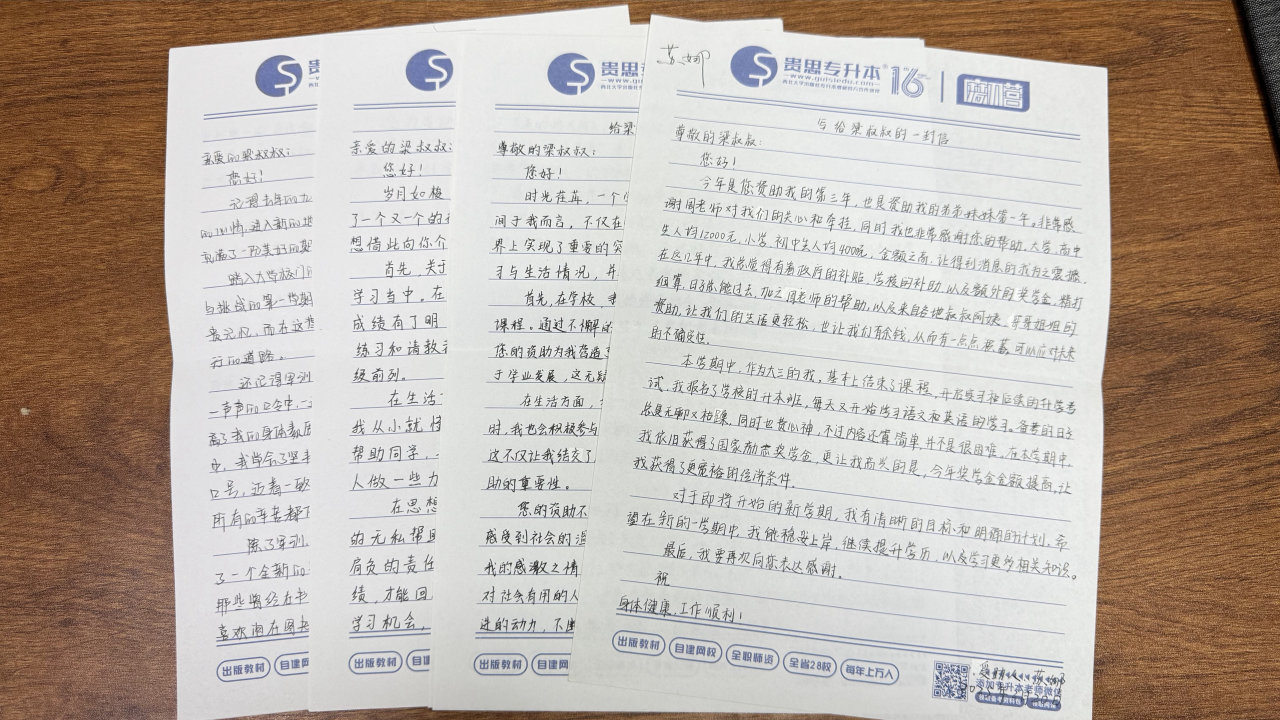 贵思
西北大学出版社
尊敬的梁叔叔:
您好!
所有的辛苦都
了一个全新的
那些曾经在书
喜欢泡在图书
出版教材
自建网
亲爱的梁叔叔:
您好!
岁月如梭
了一个又一个的
想借此向你
首先,关于
学习当中。在
成绩有了明
练习和请教
级前列。
在生活
我从小就
帮助同学,
人做一些力
在思想
的无私帮
肩负的责任
绩,才能回
学习机会,
出版教材
自建
贵思专升
www.guisiedu
西北大学出版社专升本
给梁
尊敬的梁叔叔:
您好!
时光荏苒,一个
间于我而言,不仅在
界上实现了重要的突
习与生活情况,并
首先,在学校,我
课程。通过不懈的
你的资助为我营造
于学业发展,这无疑
在生活方面,
时,我也会积极参与
这不仅让我结交了
助的重要性。
您的资助不
感受到社会的温
我的感激之情
对社会有用的人
进的动力,不
出版教材
自建网
苏娜
贵思专升本®
www.guisiedu.com
16
磨小营
写给梁叔叔的一封信
尊敬的梁叔叔:
您好!
今年是您资助我的第三年,也是资助我的弟弟妹妹第一年。非常感
谢周老师对我们的关心和牵挂,同时我也非常感谢你的帮助。大学、高中
生人均12000元,小学、初中生人均400元,金额之高,让得利消息的我为之震撼。
在这几年中,我总觉得有着政府的补贴、学校的补助,以及额外的奖学金,精打
细算,日子総能过去,加之周老师的帮助,以及来自各地叔叔阿姨、哥哥姐姐的
资助,让我们的生活更轻松,也让我们有余钱,从而有一点点积蓄,可以应对未来
的不确定性。
本学期中,作为大三的我,基本上结束了课程,开启实习和后续的升学考
试,我报名了学校的升本班,每天又开始练习语文和英语的学习。备考的日子
总是无聊又枯燥,同时也费心神,不过内容还算简单,并不是很困难。在本学期中,
我依旧获得了国家励志奖学金,更让我高兴的是,今年奖学金金额提高,让
我获得了更宽裕的经济条件。
对于即将开始的新学期,我有清晰的目标和明确的计划。希
望在新的一学期中,我能稳妥上岸,继续提升学历,以及学习更多相关知识。
最后,我要再次向您表达感谢。
祝
身体健康,工作顺利!
出版教材
自建网校
全职师资
全省28校
每年上万人